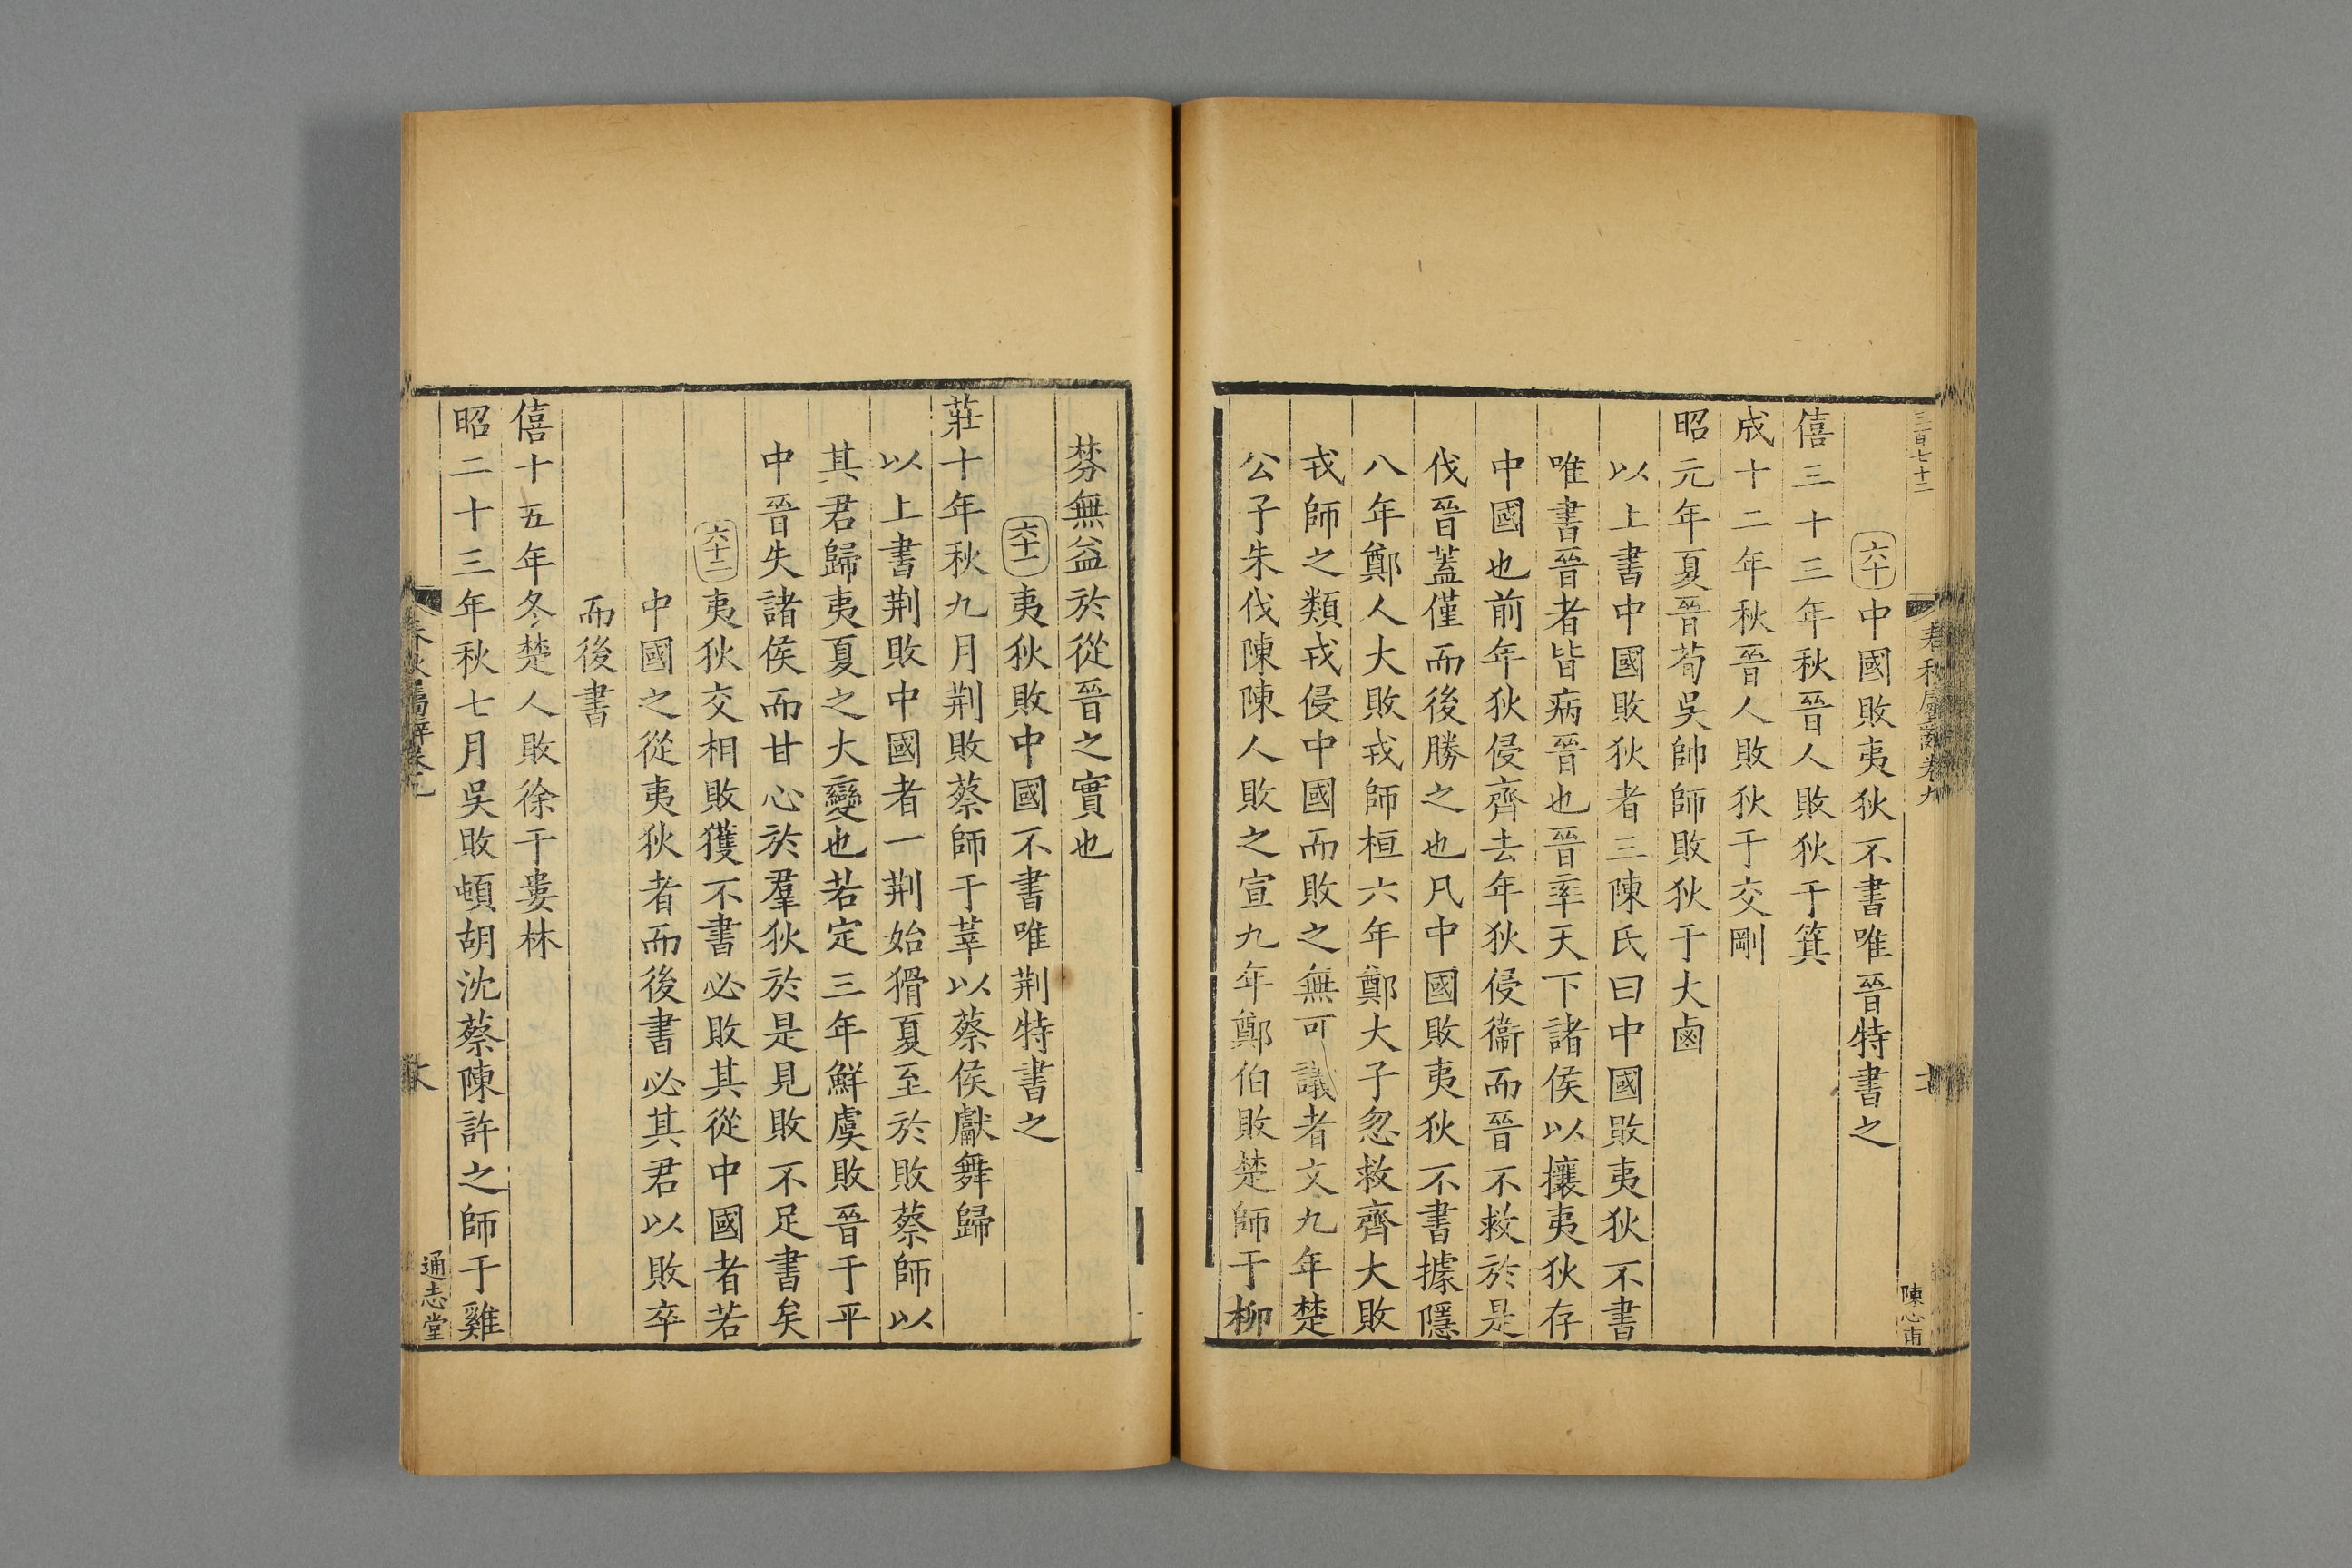 三百七十二
春秋屬辭卷九
陳心甫
六十 中國敗夷狄不書唯晉特書之
僖三十三年秋晉人敗狄于箕
成十二年秋晉人敗狄于交剛
昭元年夏晉荀吳帥師敗狄于大鹵
以上書中國敗狄者三陳氏曰中國敗夷狄不書
唯書晉者皆病晉也晉率天下諸侯以攘夷狄存
中國也前年狄侵齊去年狄侵衞而晉不救於是
伐晉蓋僅而後勝之也凡中國敗夷狄不書據隱
八年鄭人大敗戎師桓六年鄭大子忽救齊大敗
戎師之類戎侵中國而敗之無可議者文九年楚
公子朱伐陳陳人敗之宣九年鄭伯敗楚師于柳
棼無益於從晉之實也
六十一 夷狄敗中國不書唯荆特書之
莊十年秋九月荆敗蔡師于莘以蔡侯獻舞歸
以上書荆敗中國者一荆始猾夏至於敗蔡師以
其君歸夷夏之大變也若定三年鮮虞敗晉于平
中晉失諸侯而甘心於羣狄於是見敗不足書矣
六十二 夷狄交相敗獲不書必敗其從中國者若
中國之從夷狄者而後書必其君以敗卒
而後書
僖十五年冬楚人敗徐于婁林
昭二十三年秋七月吳敗頓胡沈蔡陳許之師于雞
通志堂